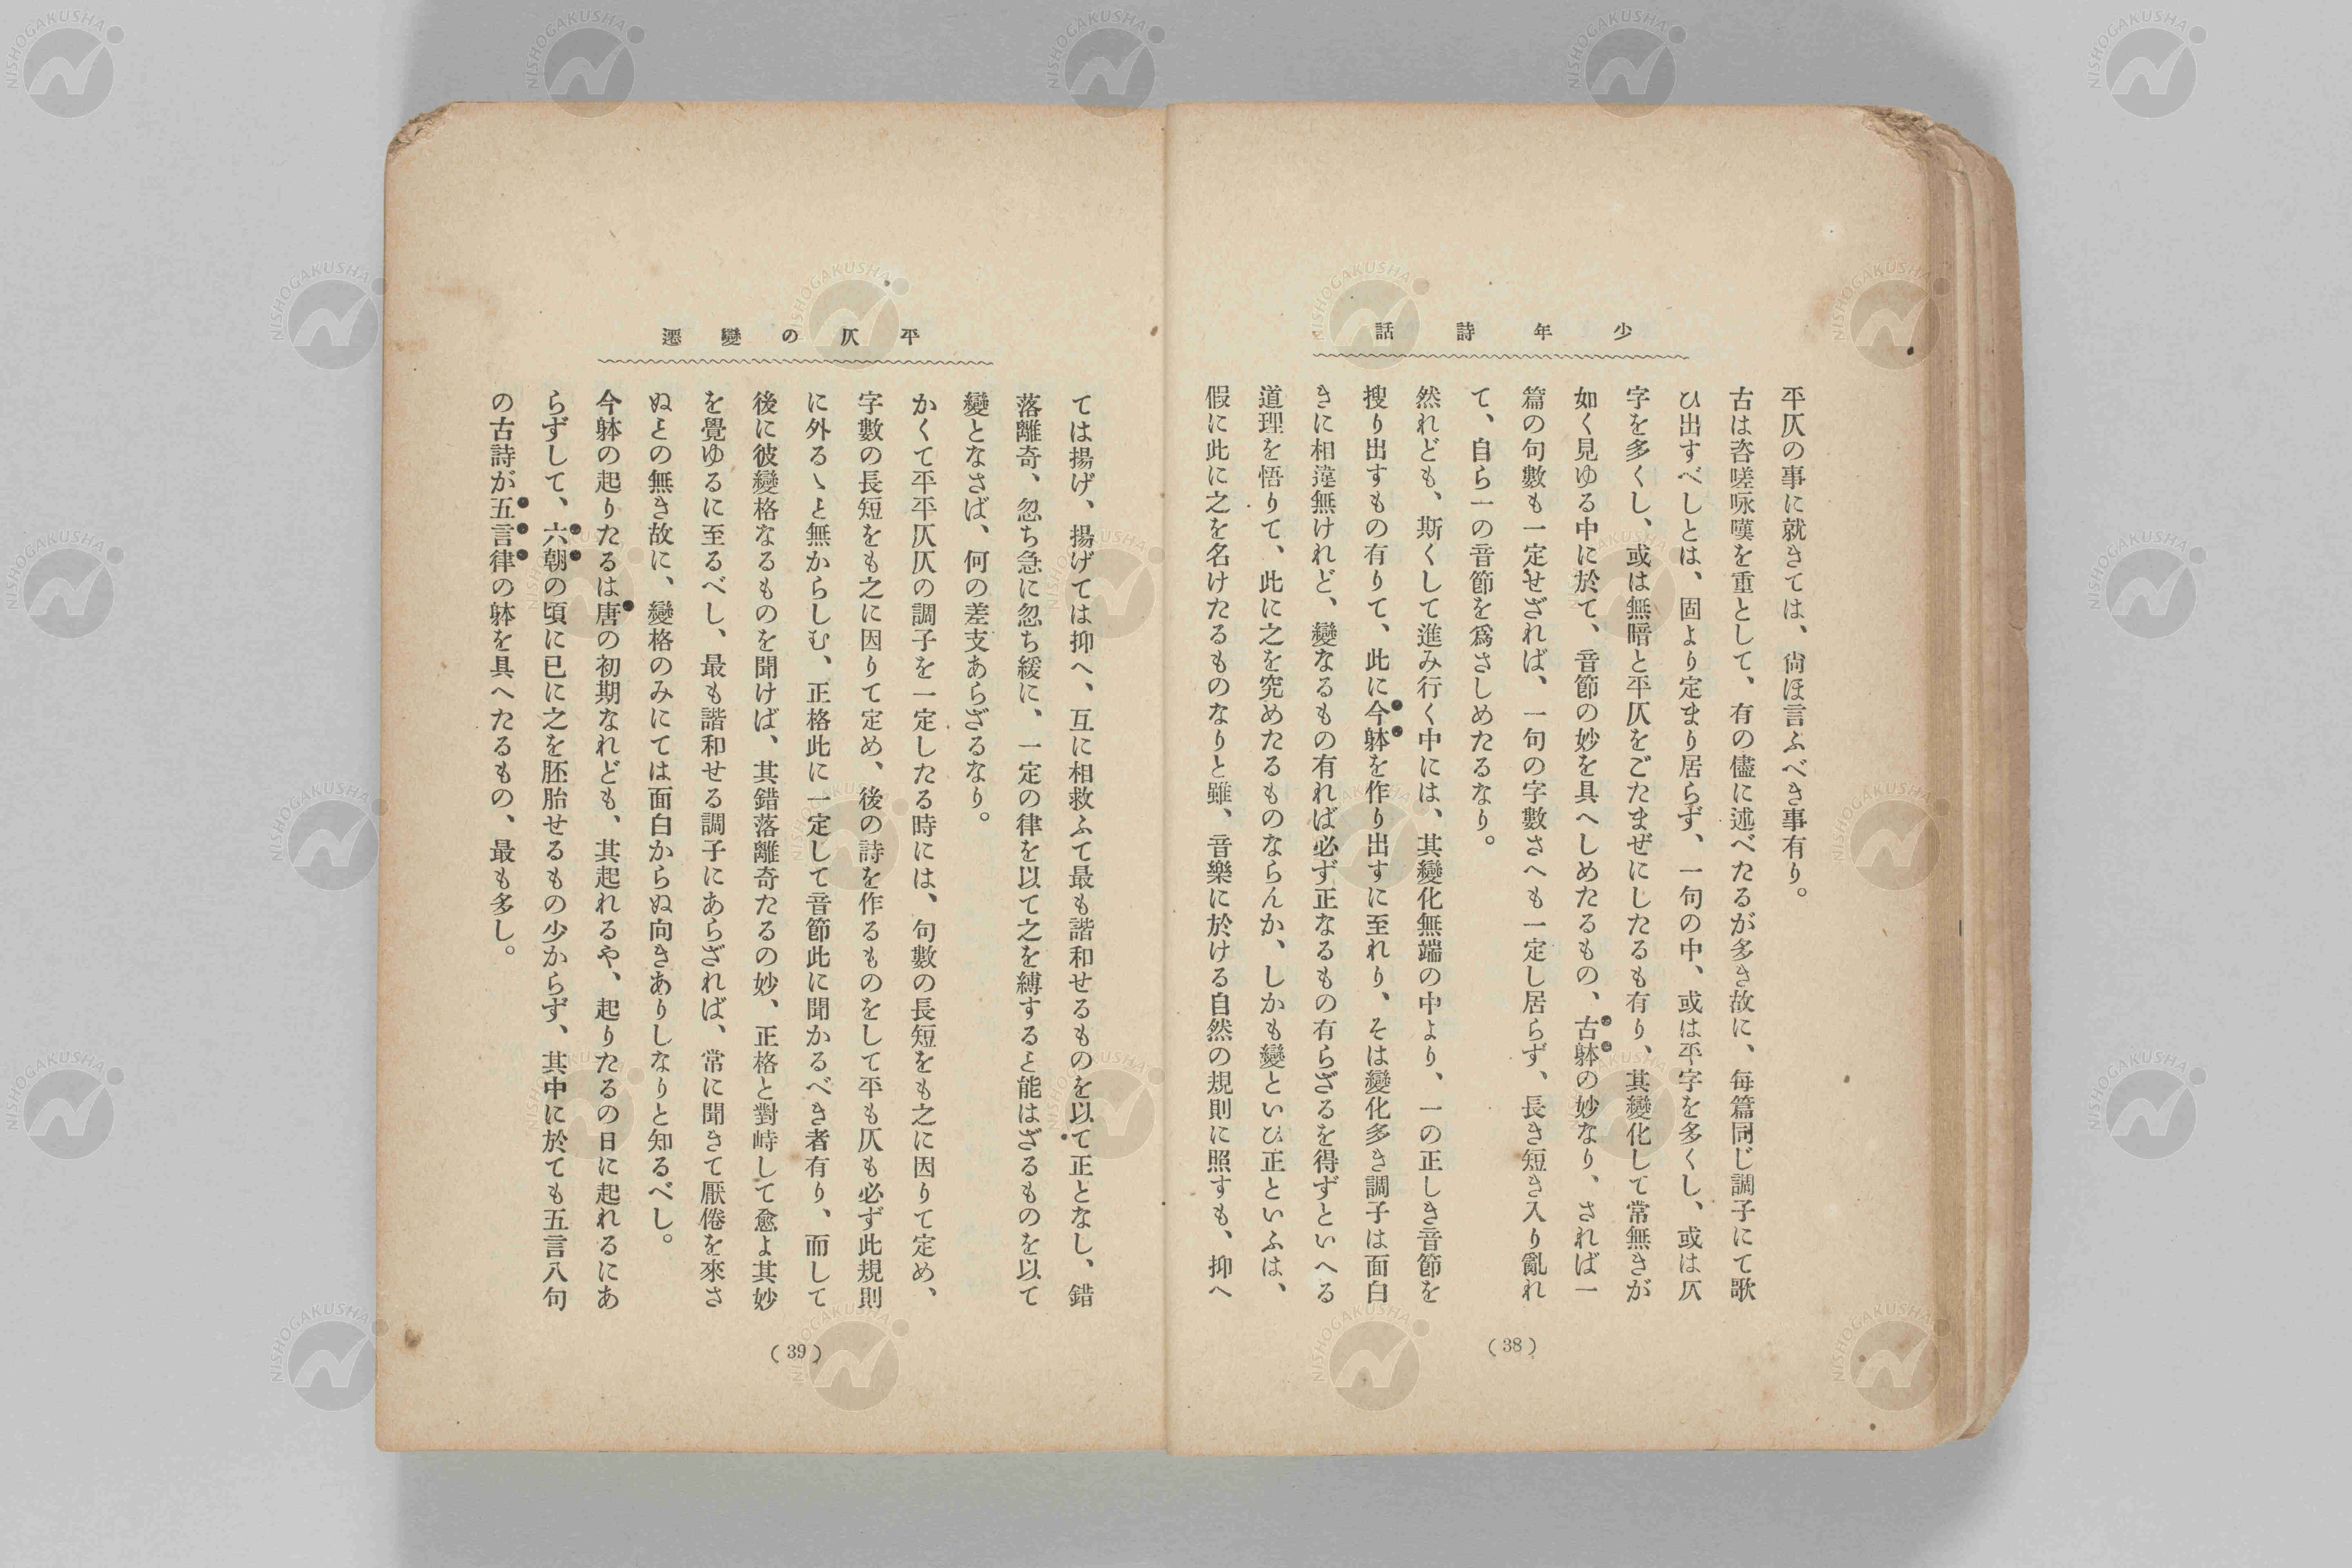 少年詩話
平仄の事に就きては、尙ほ言ふべき事有り。
古は咨嗟咏嘆を重として、有の儘に述べたるが多き故に、毎篇同じ調子にて歌
ひ出すべしとは、固より定まり居らず、一句の中、或は平字を多くし、或は仄
字を多くし、或は無暗と平仄をごたまぜにしたるも有り、其變化して常無きが
如く見ゆる中に於て、音節の妙を具へしめたるもの、古躰の妙なり、されば一
篇の句數も一定せざれば、一句の字數さへも一定し居らず、長き短き入り亂れ
て、自ら一の音節を爲さしめたるなり。
然れども、斯くして進み行く中には、其變化無端の中より、一の正しき音節を
搜り出すもの有りて、此に今躰を作り出すに至れり、そは變化多き調子は面白
きに相違無けれど、變なるもの有れば必ず正なるもの有らざるを得ずといへる
道理を悟りて、此に之を究めたるものならんか、しかも變といひ正といふは、
假に此に之を名けたるものなりと雖、音樂に於ける自然の規則に照すも、抑へ
(38)
平仄の變遷
ては揚げ、揚げては抑へ、互に相救ふて最も諧和せるものを以て正となし、錯
落離奇、忽ち急に忽ち緩に、一定の律を以て之を縛すると能はざるものを以て
變となさば、何の差支あらざるなり。
かくて平平仄仄の調子を一定したる時には、句數の長短をも之に因りて定め、
字數の長短をも之に因りて定め、後の詩を作るものをして平も仄も必ず此規則
に外るゝと無からしむ、正格此に一定して音節此に聞かるべき者有り、而して
後に彼變格なるものを聞けば、其錯落離奇たるの妙、正格と對峙して愈よ其妙
を覺ゆるに至るべし、最も諧和せる調子にあらざれば、常に聞きて厭倦を來さ
ぬとの無き故に、變格のみにては面白からぬ向きありしなりと知るべし。
今躰の起りたるは唐の初期なれども、其起れるや、起りたるの日に起れるにあ
らずして、六朝の頃に已に之を胚胎せるもの少からず、其中に於ても五言八句
の古詩が五言律の躰を具へたるもの、最も多し。
(39)
NISHOGAKUSHA